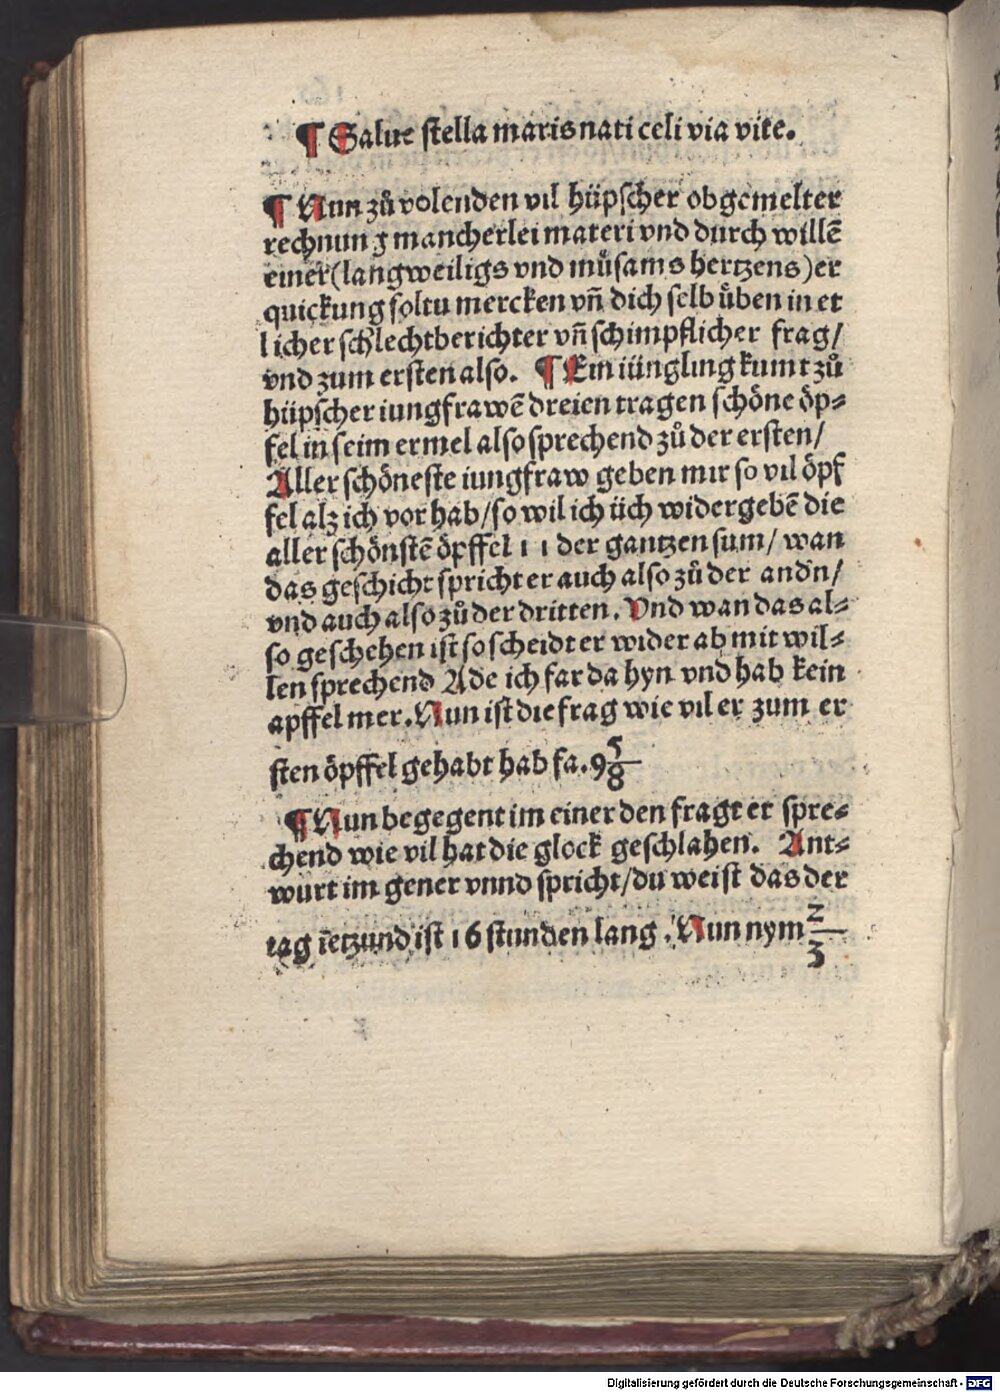 ¶ Salue stella maris nati celi via vite.
¶ Nun zů volenden vil hüpscher obgemelter
rechnung mancherlei materi vnd durch willẽ
einer (langweiligs vnd můsams hertzens) er
quickung soltu mercken vñ dich selb üben in et
licher schlechtberichter vñ schimpflicher frag/
vnd zum ersten also. ¶ Ein iüngling kumt zů
hüpscher iungfrawẽ dreien tragen schöne öp⸗
fel in seim ermel also sprechend zů der ersten/
Aller schöneste iungfraw geben mir so vil öpf
fel alz ich vor hab/ so wil ich üch widergebẽ die
aller schönstẽ öpffel 11 der gantzen sum/ wan
das geschicht spricht er auch also zů der andn/
vnd auch also zů der dritten. Vnd wan das al⸗
so geschehen ist so scheidt er wider ab mit wil⸗
len sprechend Ade ich far da hyn vnd hab kein
apffel mer. Nun ist die frag wie vil er zum er
sten öpffel gehabt hab fa. 9 5/8
¶ Nun begegent im einer den fragt er spre⸗
chend wie vil hat die glock geschlahen. Ant⸗
wurt im gener vnnd spricht/ du weist das der
tag ietzund ist 16 stunden lang. Nun nym 2/3
Digitalisierung gefördert durch die Deutsche Forschungsgemeinschaft - DFG